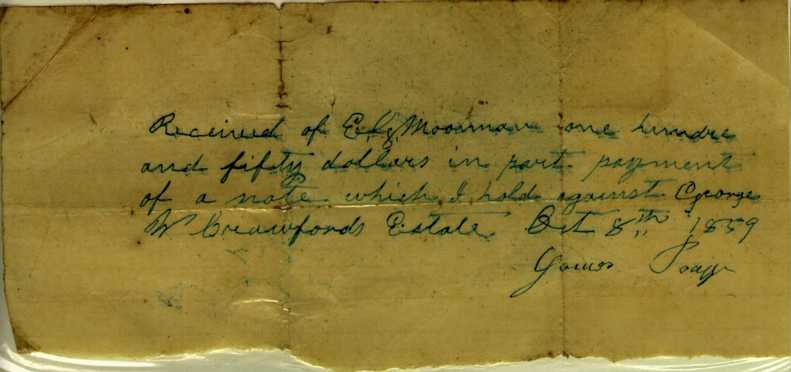 Received of E. G. Moorman one hundre
and fifty dollars in part payment
of a note which I hold against George
W Crawfords Estate Oct 8th 1859
James